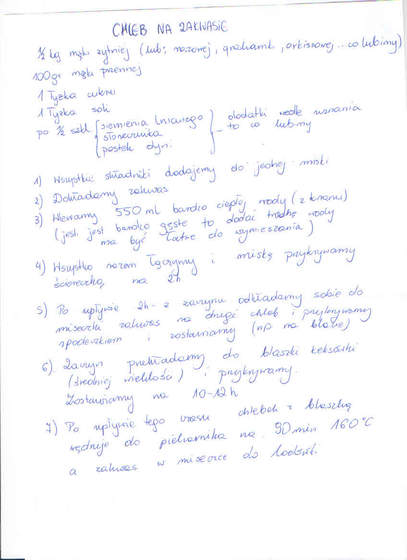 CHLEB NA ZAKWASIE
1/2 kg mąki żytniej (lub: razowej, grahama, orkiszowej... co lubimy)
100 gr mąki pszennej
1 łyżka cukru
1 łyżka soli
po 1/2 szkl. [siemienia lnianego
słonecznika
pestek dyni] - dodatki wedle uznania - to co lubimy
1) Wszystkie składniki dodajemy do jednej miski
2) Dokładamy zakwas
3) Wlewamy 550 ml bardzo ciepłej wody (z kranu)
(jeśli jest bardzo gęste to dodać trochę wody
ma być łatwe do wymieszania)
4) Wszystko razem łączymy i miskę przykrywamy
ściereczką na 2h
5) Po upływie 2h - z zaczynu odkładamy sobie do
miseczki zakwas na drugi chleb i przykrywamy
spodeczkiem i zostawiamy (np na blacie)
6) Zaczyn przekładamy do blaszki keksówki
(średniej wielkości) i przykrywamy.
Zostawiamy na 10-12h
7) Po upływie tego czasu chlebek z blaszką
wędruje do piekarnika na 90 min 160°C
a zakwas w miseczce do lodówki.